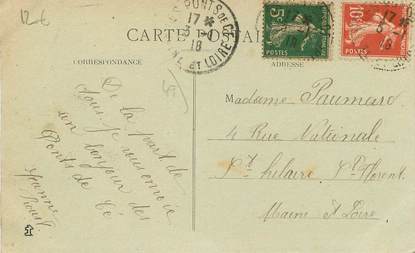 12-6
LES PONTS DE CÉ
17
3-1
18
MAINE ET LOIRE
5c
POSTES
10c
POSTES
CARTE POSTALE
CORRESPONDANCE
ADRESSE
De la part de
tous je vous envoie
un bonjour des
Ponts de Cé
Jeanne
Madame Paumard
4 Rue Nationale
St hilaire St Florent
Maine et Loire